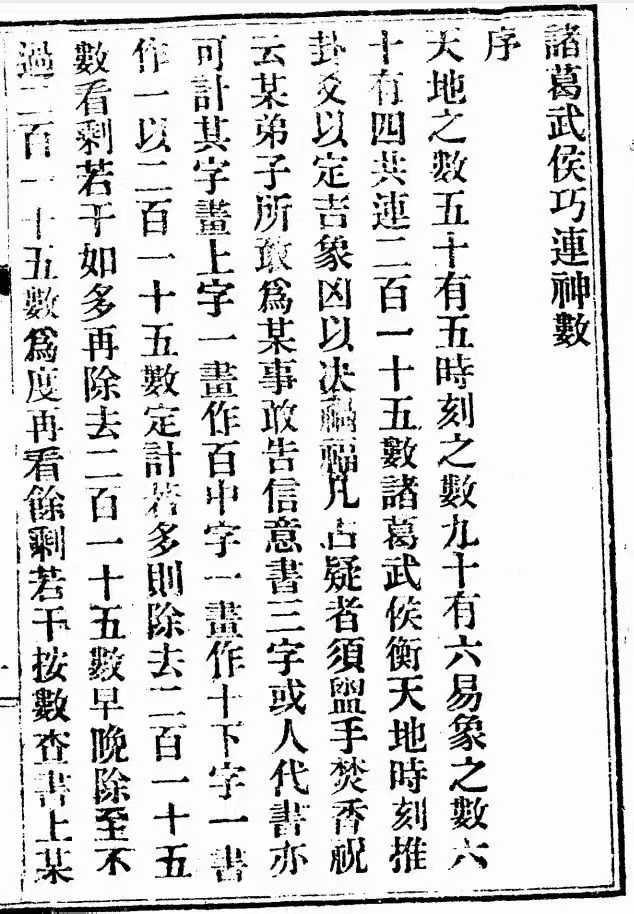 諸葛武侯巧連神數
序
天地之數五十有五時刻之數九十有六易象之數六
十有四共連二百一十五數諸葛武侯衡天地時刻推
卦爻以定吉象凶以决禍福凡占疑者須盥手焚香祝
云某弟子所敢爲某事敢告信意書三字或人代書亦
可計其字畫上字一畫作百中字一畫作十下字一畫
作一以二百一十五數定計若多則除去二百一十五
數看剩若干如多再除去二百一十五數早晚除至不
過二百一十五數爲度再看餘剩若干按數查書上某